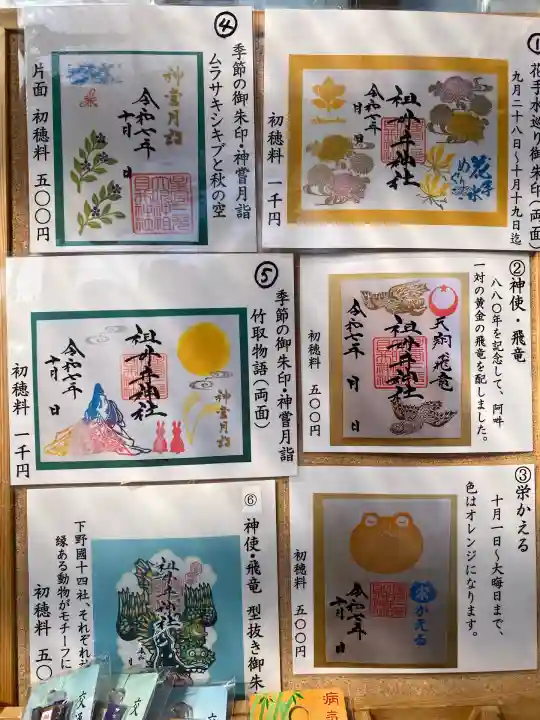 ①
花手水巡り御朱印(両面)
九月二十八日〜十月十九日迄
祖母井神社
令和七年
月 日
花手水
めぐり
初穂料 一千円
④
季節の御朱印・神嘗月詣
ムラサキシキブと秋の空
神嘗月詣
令和七年
十月 日
片面 初穂料 五〇〇円
②神使・飛竜
八八〇年を記念して、阿吽
一対の黄金の飛竜を配しました。
天翔 飛竜
祖母井神社
令和七年
月 日
初穂料 五〇〇円
⑤
季節の御朱印・神嘗月詣
竹取物語(両面)
神嘗月詣
祖母井神社
令和七年
十月 日
初穂料 一千円
③栄かえる
十月一日〜大晦日まで、
色はオレンジになります。
栄かえる
令和七年
十月 日
初穂料 五〇〇円
⑥
神使・飛竜 型抜き御朱
下野國十四社、それぞれ
縁ある動物がモチーフに
祖母井神社
初穂料 五〇